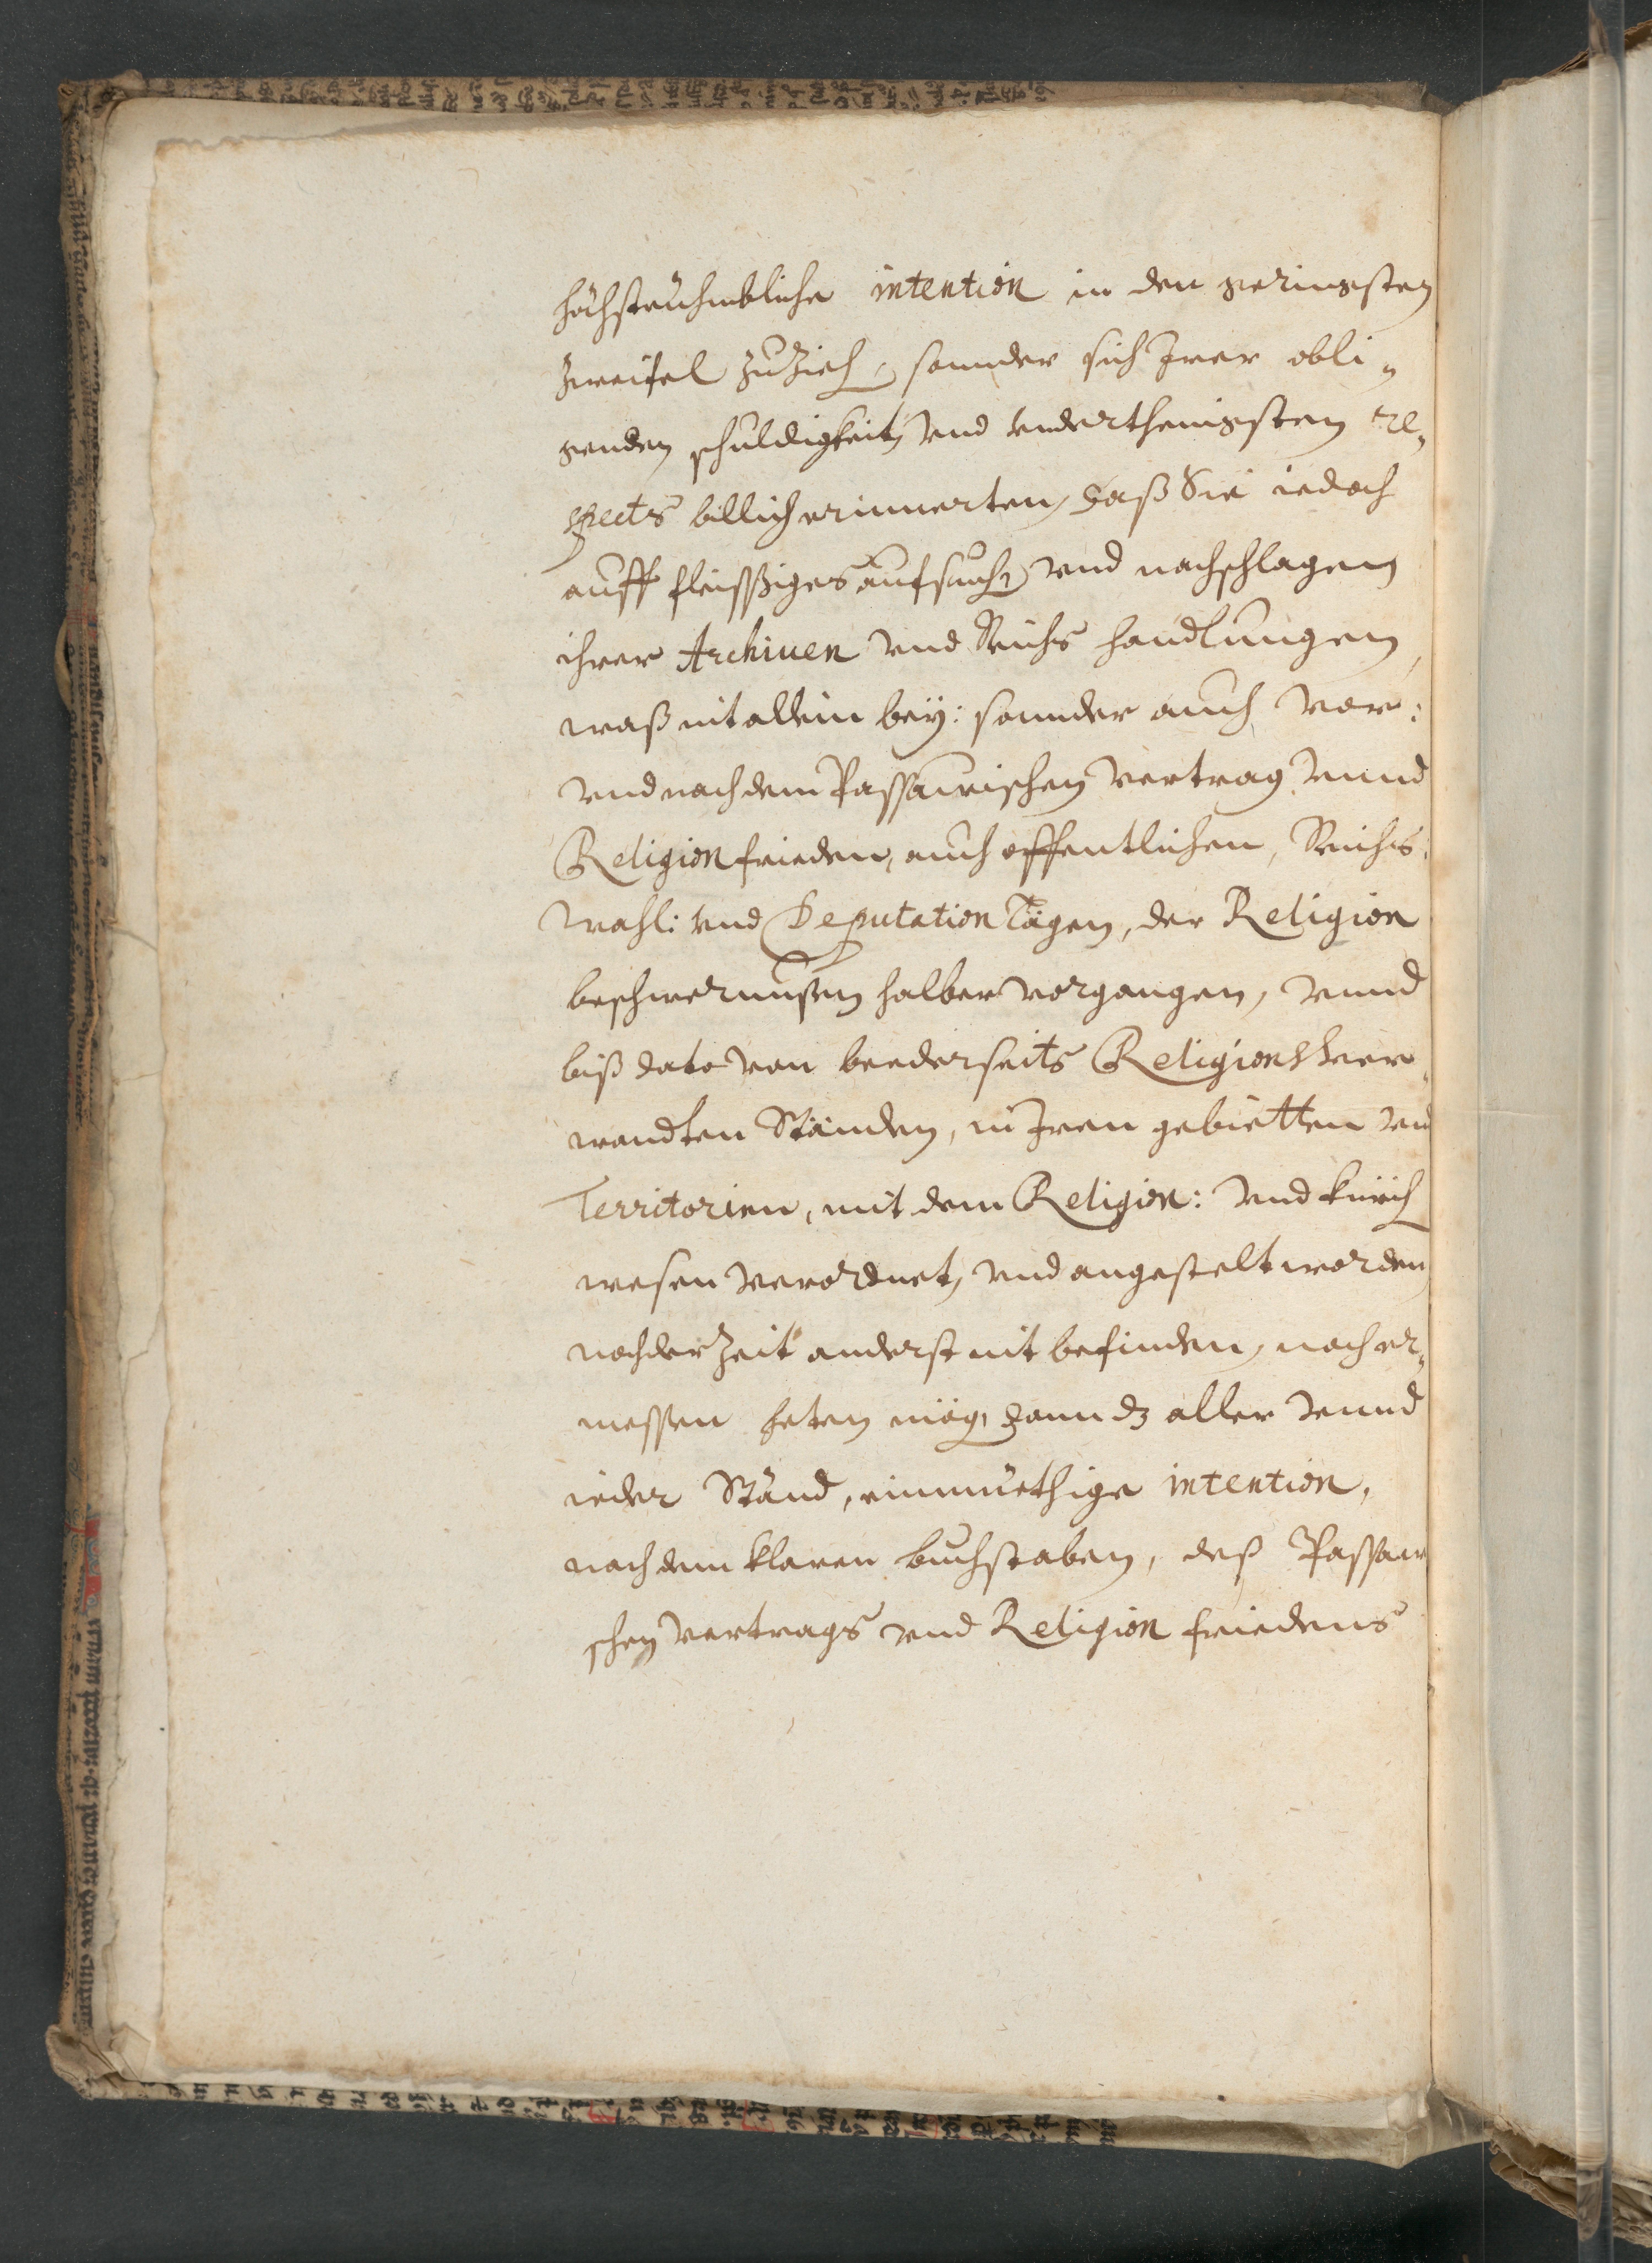 höchstrühmbliche intention in den geringsten
zweifel zuzieh, sonnder sich Irer obli„
genden schuldigkeit vnd vnderthenigsten re„
spects billich erinnerten, daß Sie iedoch
auff fleissiges aufsuch vnd nachschlagen
ihrer Archiuen vnd Reichs handlungen,
waß nit allein bey: sonnder auch vor:
vnd nach dem Passawischen Vertrag vnnd
Religion frieden, auch offentlichen, Reichs:
Wahl: vnd Deputation Tägen, der Religion
beschwernußen halber vorgangen, vnnd
biß dato von beederseits Religions Ver„
wandten Stännden, in Iren gebietten vnd
Territorien, mit dem Religion: vnd Kirch
wesen verordnet, vnd angestelt worden
noch der Zeit anderst nit befinden, noch er„
messen heten mög, dann dz aller vnnd
ieder Stännd, einmüethige intention,
nach dem klaren buchstaben, deß Passaw
schen Vertrags vnd Religion friedens